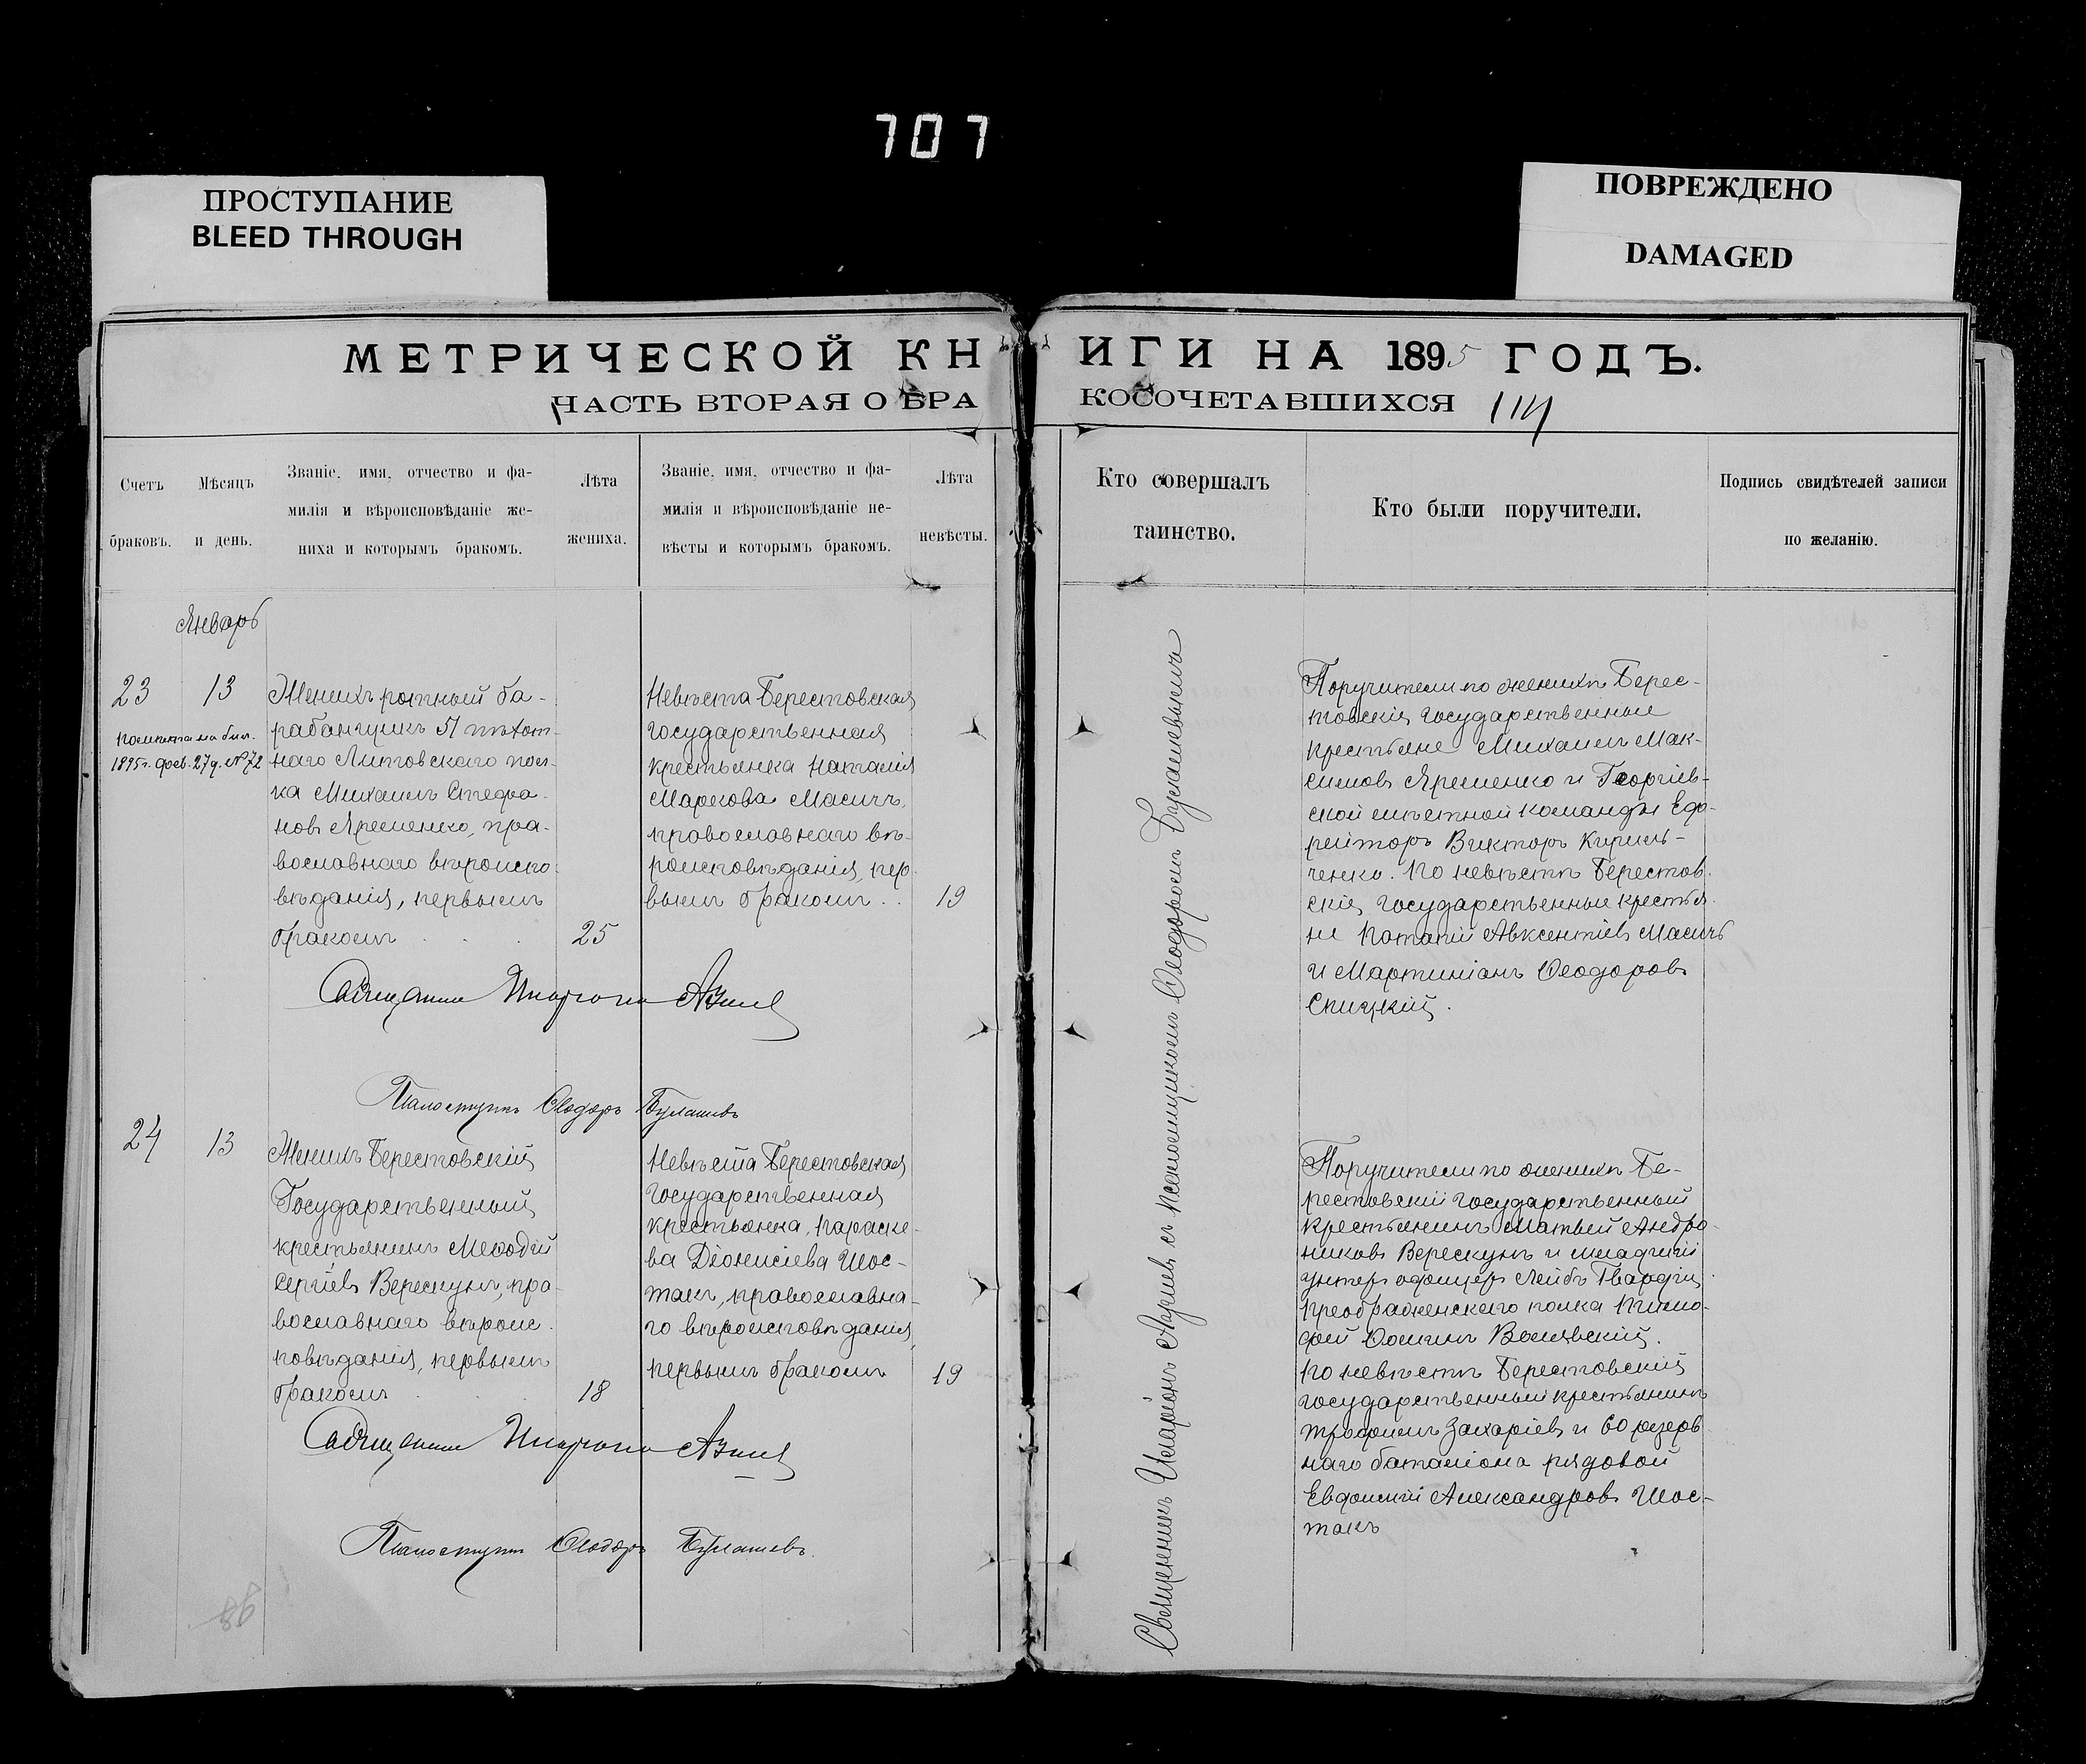 707
ПРОСТУПАНИЕ
BLEED THROUGH
ПОВРЕЖДЕНО
DAMAGED
МЕТРИЧЕСКОЙ КНИГИ НА 1895 ГОДЪ.
ЧАСТЬ ВТОРАЯ О БРАКОСОЧЕТАВШИХСЯ
114
Счетъ
браковъ.
Мѣсяцъ
и день.
Званіе, имя, отчество и фа-
милія и вѣроисповѣданіе же-
ниха и которымъ бракомъ.
Лѣта
жениха.
Званіе, имя, отчество и фа-
милія и вѣроисповѣданіе не-
вѣсты и которымъ бракомъ.
Лѣта
невѣсты.
Кто совершалъ
таинство.
Кто были поручители.
Подпись свидѣтелей записи
по желанію.
Январь
23
13
1895 г. фев. 27 д. № 72
Женихъ ротный ба-
рабанщикъ 51 пѣхот-
наго Литовскаго пол-
ка Михаилъ Стефа-
новъ Яременко, пра-
вославнаго вѣроиспо-
вѣданія, первымъ
бракомъ . . .
25
Невѣста Берестовская
государственная
крестьянка Наталія
Маркова Масичъ,
православнаго вѣ-
роисповѣданія, пер-
вымъ бракомъ . .
19
Священникъ Иларіонъ Азіевъ
Псаломщикъ Ѳеодоръ Булашевъ
Поручители по женихѣ Берес-
товскіе государственные
крестьяне Михаилъ Мак-
симовъ Яременко и Георгіев-
ской мѣстной команды Еф-
рейторъ Викторъ Кирил-
ченко. По невѣстѣ Берестов-
скіе государственные крестья-
не Потапій Авксентіевъ Масичъ
и Мартиніанъ Ѳеодоровъ
Спицкій.
24
13
Женихъ Берестовскій
Государственный
крестьянинъ Меѳодій
Сергіевъ Верескунъ, пра-
вославнаго вѣроис-
повѣданія, первымъ
бракомъ . . .
18
Невѣста Берестовская
государственная
крестьянка, Параске-
ва Діонисіева Шос-
такъ, православна-
го вѣроисповѣданія,
первымъ бракомъ
19
Священникъ Иларіонъ Азіевъ
Псаломщикъ Ѳеодоръ Булашевъ.
Поручители по женихѣ Бе-
рестовскій государственный
крестьянинъ Матвей Андро-
никовъ Верескунъ и младшій
унтеръ офицеръ Лейбъ Гвардіи
Преображенскаго полка Тимо-
фей Ѳоминъ
По невѣстѣ Берестовскій
государственный крестьянинъ
Трофимъ Захаріевъ и 60 резерв-
наго баталіона рядовой
Евфимій Александровъ Шос-
такъ
Священникъ Иларіонъ Азіевъ съ псаломщикомъ Ѳеодоромъ Булашевымъ
86